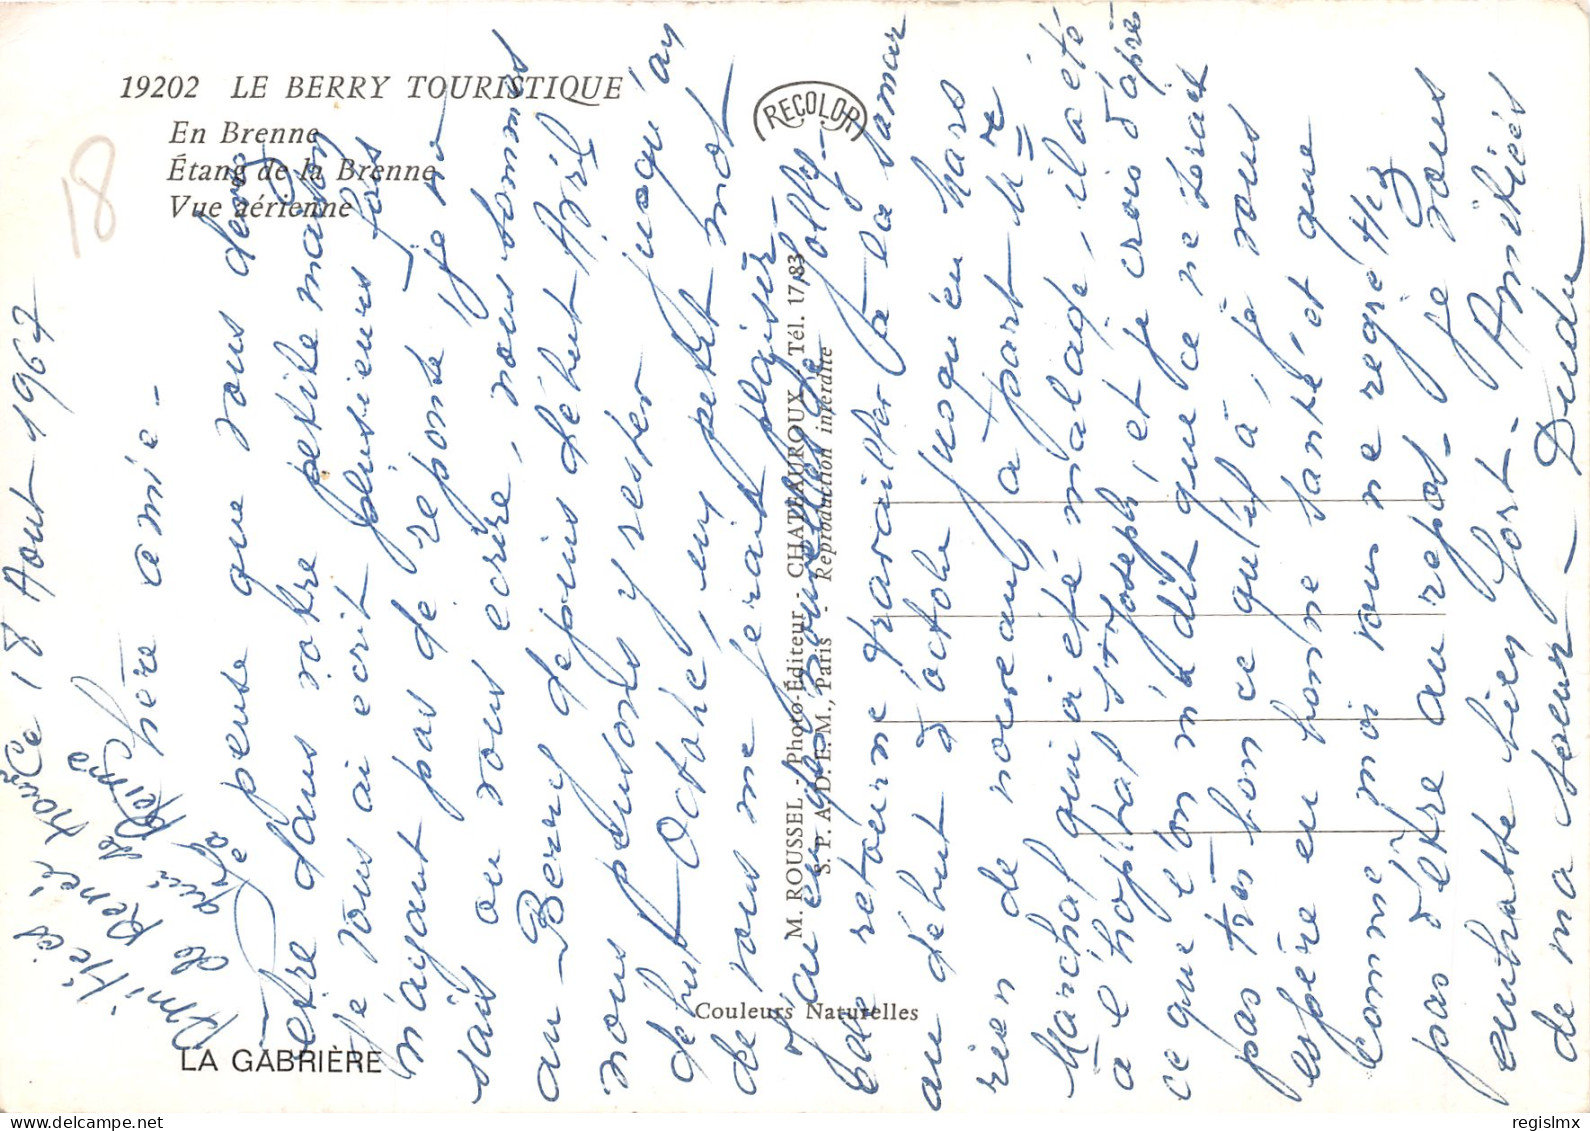 19202 LE BERRY TOURISTIQUE
En Brenne
Étang de la Brenne
Vue aérienne
18
RECOLOR
M. ROUSSEL - Photo-Éditeur - CHATEAUROUX - Tél. 17,83
S. P. A. D. E. M., Paris - Reproduction interdite
Couleurs Naturelles
LA GABRIÈRE
Ce 18 Aout 1967
chère amie -
Je pense que vous devez
être dans votre petite maison
Je vous ai ecrit plusieurs fois
n'ayant pas de réponse je ne
sais ou vous ecrire, nous sommes
au Berry depuis début Avril
nous pensons y rester jusqu'au
debut Octobre, un petit mot
de vous me ferait plaisir -
J'ai eu des nouvelles de Jolly -
elle retourne travailler à la samar
au début d'octobre jusqu'en Mars
rien de nouveau, à part Mr
Marchal qui a été malade, il a été
à l'hopital St Joseph, et je crois d'après
ce que l'on m'a dit que ce ne serait
pas très bon ce qu'il a, je vous
espère en bonne santé, et que
comme moi vous ne regrettez
pas d'être au repos - je vous
embrasse bien fort - Amitiés
de ma soeur - Dudu